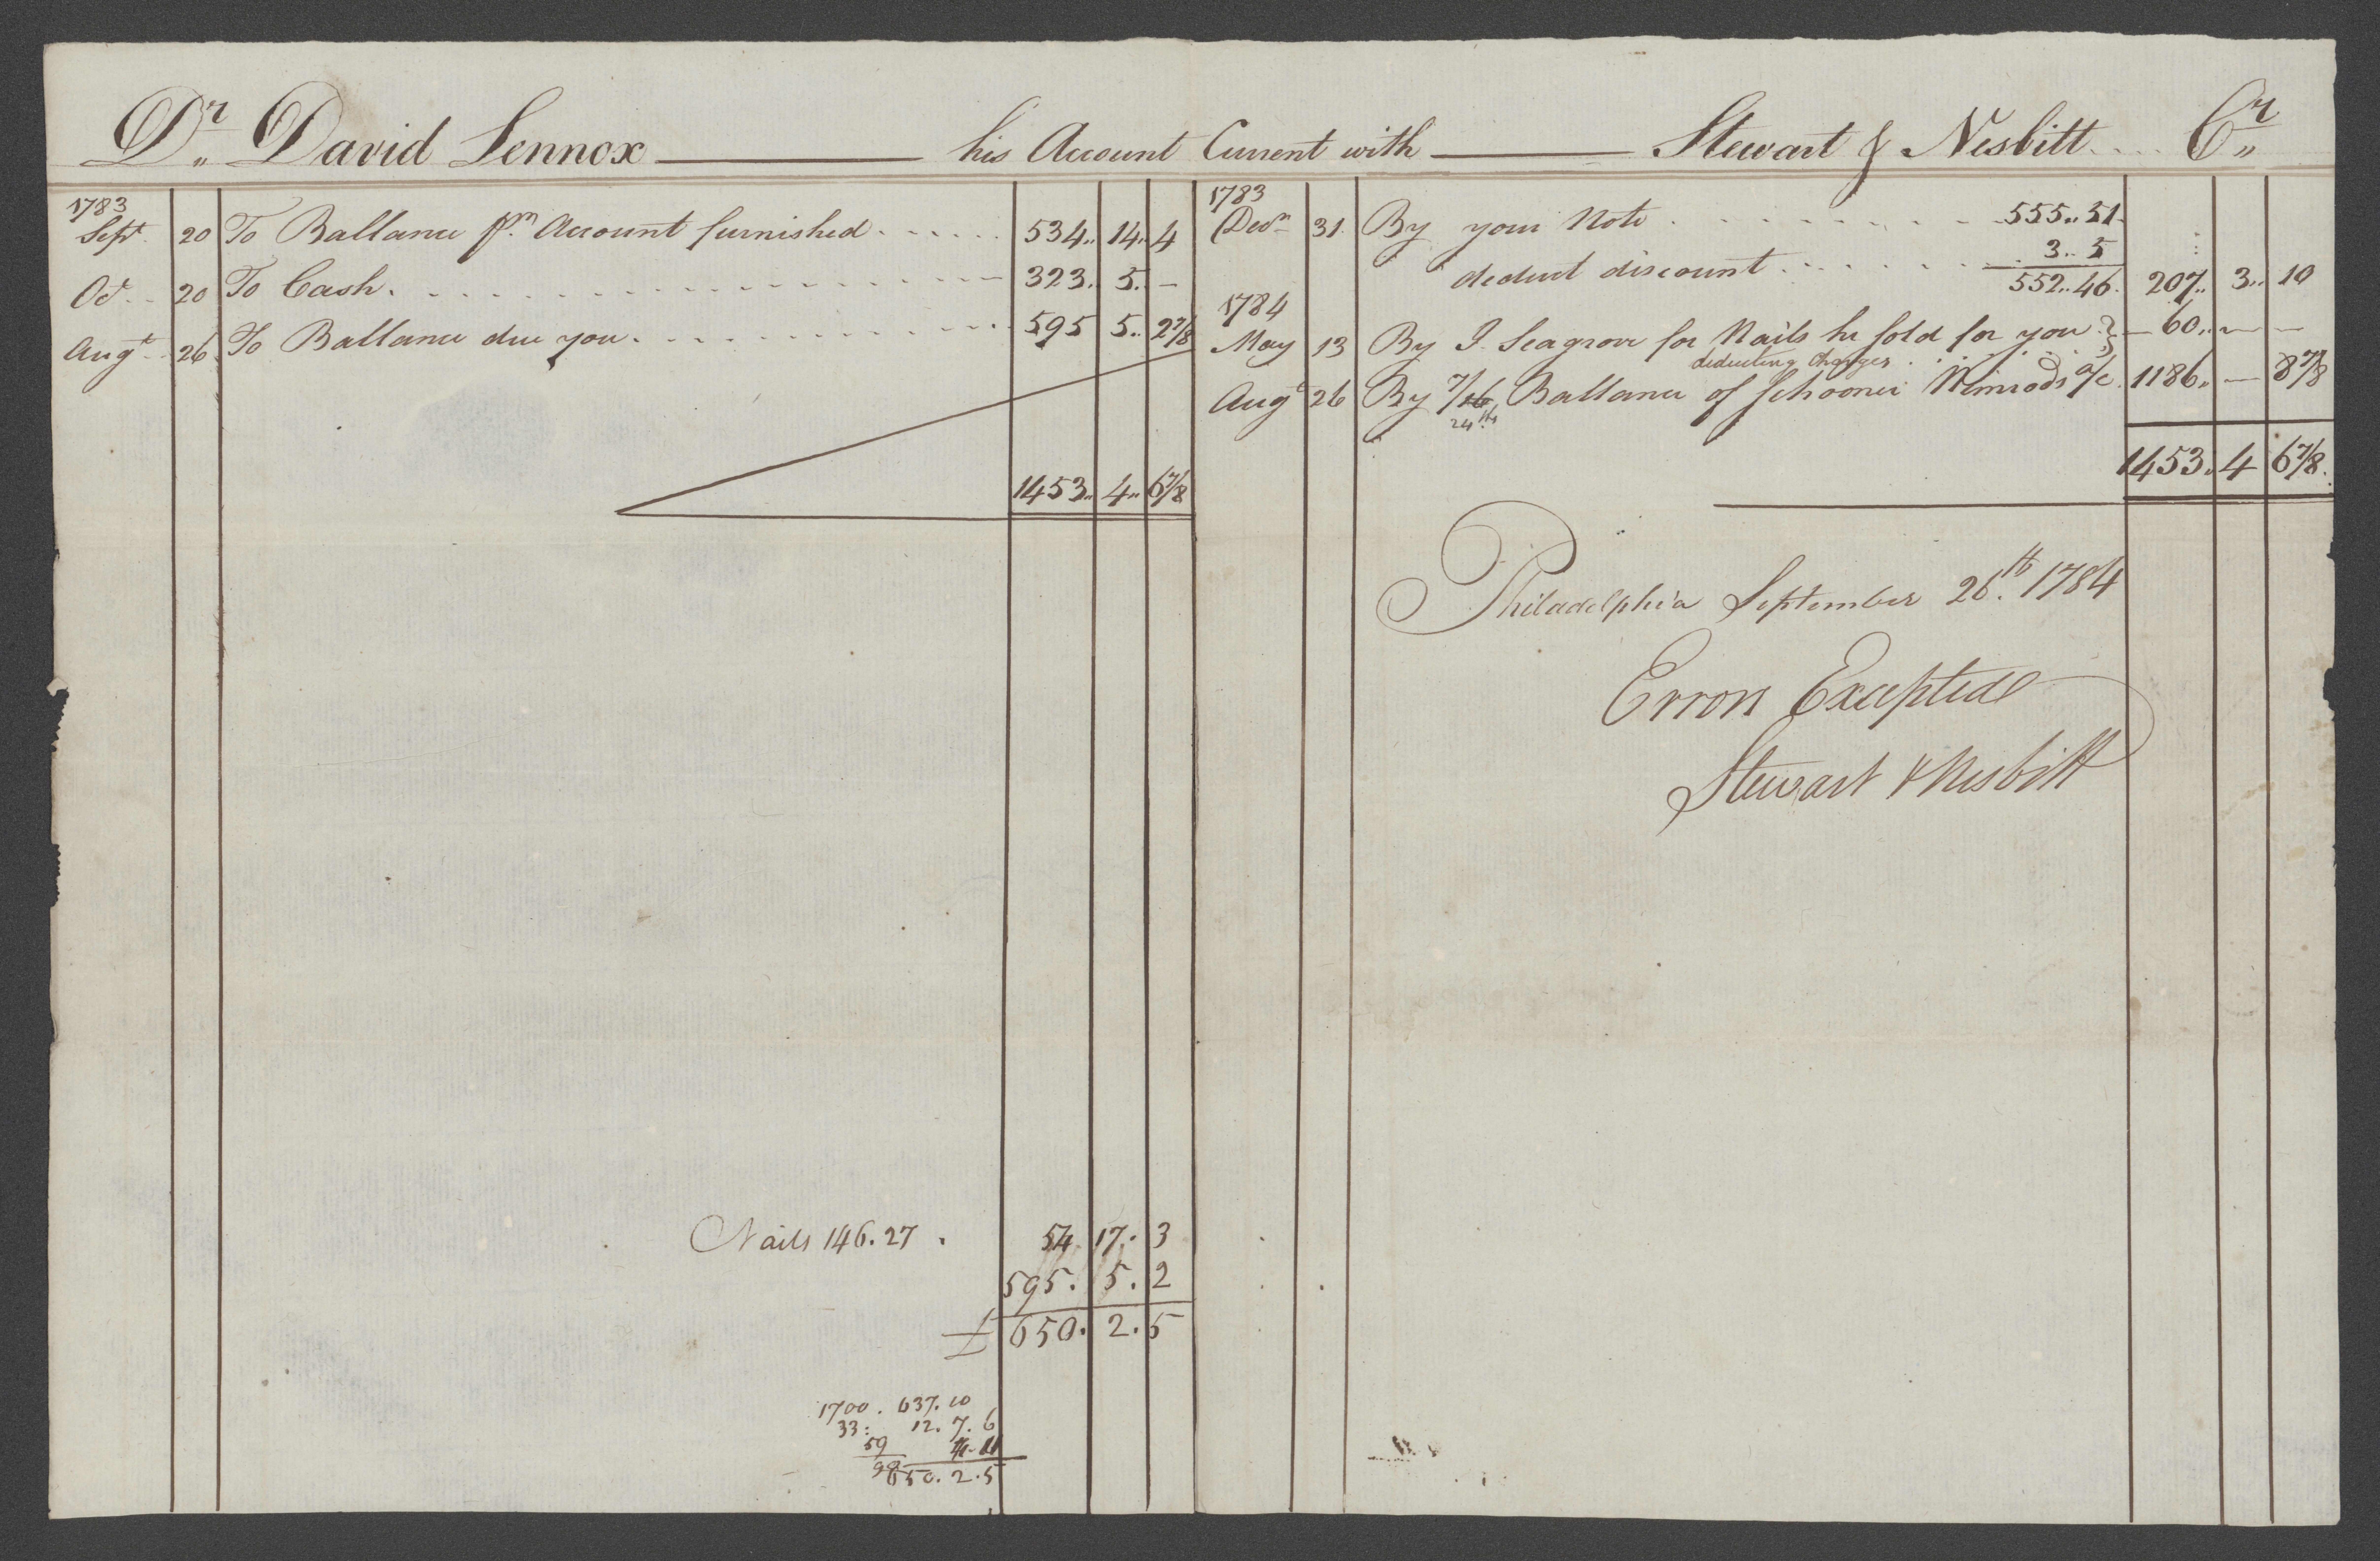 Dr. David Lennox his Account Current with Stewart & Nesbitt Cr.
1783
Sept. 20 To Ballance pr. Account furnished 534.. 14.. 4
Oct. 20 To Cash 323.. 5.. –
Augt. 26 To Ballance due you 595 5.. 2 7/8
1453.. 4.. 6 7/8
1783
Decr. 31 By your Note 555.. 51
3.. 5
deduct discount 552.. 46 207.. 3.. 10
1784
May 13 By J. Seagrove for Nails he sold for you } – 60.. – –
deducting Charges
Augt. 26 By 7/16 Ballance of Schooner Nimrods a/c 1186.. – 8 7/8
24th
1453.. 4 6 7/8
Philadelphia September 26th. 1784
Errors Excepted
Stewart & Nesbitt
Nails 146.27 . 54. 17. 3
595. 5. 2
£ 650. 2. 5
1700. 637. 10
33: 12. 7. 6
59
98 650. 2. 5